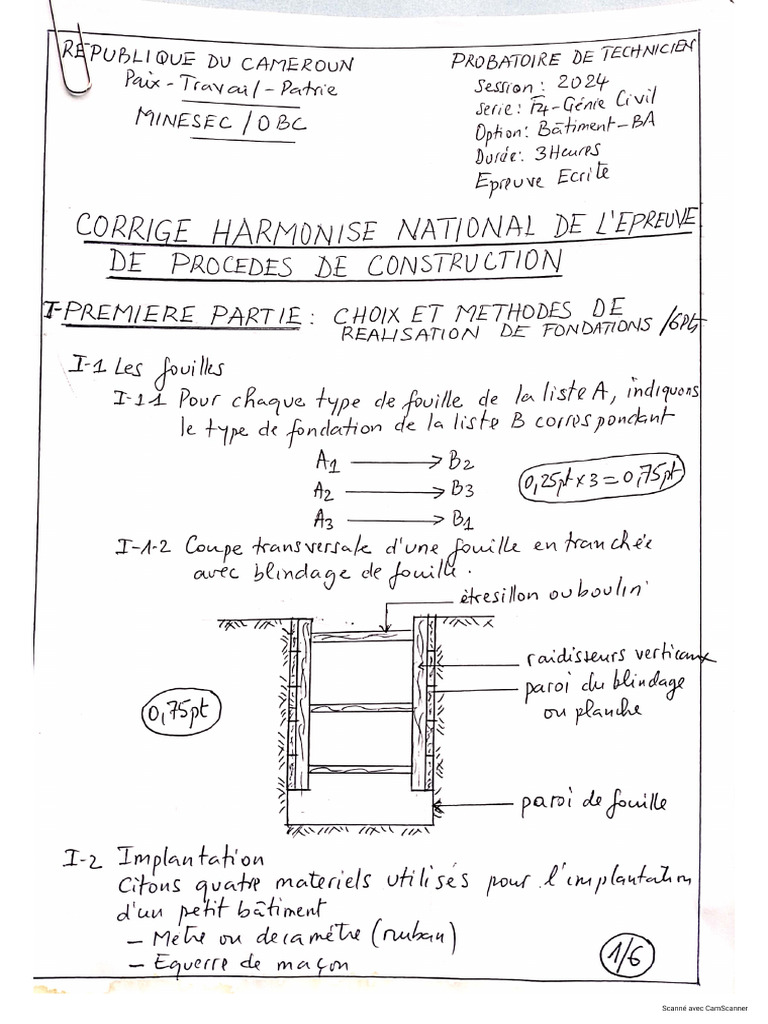 REPUBLIQUE DU CAMEROUN
Paix-Travail-Patrie
MINESEC/OBC
PROBATOIRE DE TECHNICIEN
Session: 2024
Serie: F4-Génie Civil
Option: Bâtiment-BA
Durée: 3Heures
Epreuve Ecrite
CORRIGE HARMONISE NATIONAL DE L'EPREUVE
DE PROCEDES DE CONSTRUCTION
I-PREMIERE PARTIE: CHOIX ET METHODES DE
REALISATION DE FONDATIONS /6pts
I-1 Les fouilles
I-1.1 Pour chaque type de fouille de la liste A, indiquons
le type de fondation de la liste B correspondant
A1 → B2
A2 → B3
A3 → B1
0,25pt x 3 = 0,75pt
I-1-2 Coupe transversale d'une fouille en tranchée
avec blindage de fouille.
étresillon ou boulin
raidisseurs verticaux
paroi du blindage
ou planche
0,75pt
paroi de fouille
I-2 Implantation
Citons quatre materiels utilisés pour l'implantation
d'un petit bâtiment
- Mètre ou decamétre (ruban)
- Equerre de maçon
1/6
Scanné avec CamScanner